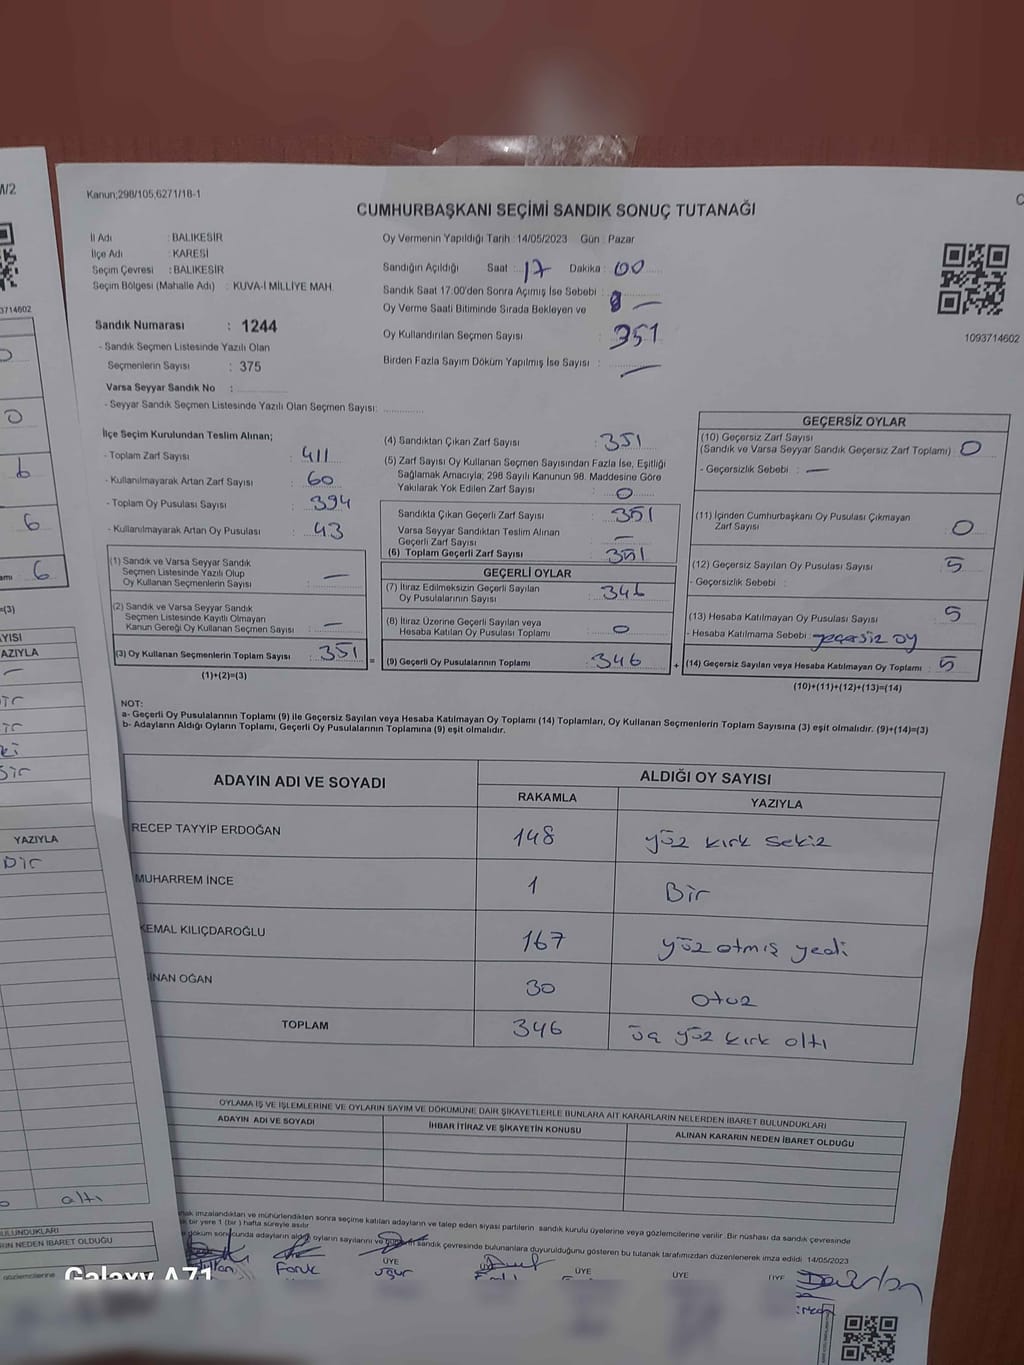 M/2
3714602
0
0
6
6
6
=(3)
AYISI
AZIYLA
YAZIYLA
Bir
altı
BULUNDUKLARI
NEDEN İBARET OLDUĞU
Kanun;298/105,6271/18-1
CUMHURBAŞKANI SEÇİMİ SANDIK SONUÇ TUTANAĞI
İl Adı : BALIKESİR
İlçe Adı : KARESİ
Seçim Çevresi : BALIKESİR
Seçim Bölgesi (Mahalle Adı) : KUVA-İ MİLLİYE MAH.
Sandık Numarası : 1244
- Sandık Seçmen Listesinde Yazılı Olan
Seçmenlerin Sayısı : 375
Varsa Seyyar Sandık No :
- Seyyar Sandık Seçmen Listesinde Yazılı Olan Seçmen Sayısı:
Oy Vermenin Yapıldığı Tarih :14/05/2023 Gün : Pazar
Sandığın Açıldığı Saat : 17 Dakika : 00
Sandık Saat 17:00'den Sonra Açımış İse Sebebi :
Oy Verme Saati Bitiminde Sırada Bekleyen ve
Oy Kullandırılan Seçmen Sayısı : 351
Birden Fazla Sayım Döküm Yapılmış İse Sayısı : —
1093714602
İlçe Seçim Kurulundan Teslim Alınan;
- Toplam Zarf Sayısı : 411
- Kullanılmayarak Artan Zarf Sayısı : 60
- Toplam Oy Pusulası Sayısı : 394
- Kullanılmayarak Artan Oy Pusulası : 43
(1) Sandık ve Varsa Seyyar Sandık
Seçmen Listesinde Yazılı Olup
Oy Kullanan Seçmenlerin Sayısı : —
(2) Sandık ve Varsa Seyyar Sandık
Seçmen Listesinde Kayıtlı Olmayan
Kanun Gereği Oy Kullanan Seçmen Sayısı : —
(3) Oy Kullanan Seçmenlerin Toplam Sayısı : 351
(1)+(2)=(3)
(4) Sandıktan Çıkan Zarf Sayısı : 351
(5) Zarf Sayısı Oy Kullanan Seçmen Sayısından Fazla İse, Eşitliği
Sağlamak Amacıyla; 298 Sayılı Kanunun 98. Maddesine Göre
Yakılarak Yok Edilen Zarf Sayısı : 0
Sandıkta Çıkan Geçerli Zarf Sayısı : 351
Varsa Seyyar Sandıktan Teslim Alınan
Geçerli Zarf Sayısı : —
(6) Toplam Geçerli Zarf Sayısı : 351
GEÇERLİ OYLAR
(7) İtiraz Edilmeksizin Geçerli Sayılan
Oy Pusulalarının Sayısı : 346
(8) İtiraz Üzerine Geçerli Sayılan veya
Hesaba Katılan Oy Pusulası Toplamı : 0
= (9) Geçerli Oy Pusulalarının Toplamı : 346 +
GEÇERSİZ OYLAR
(10) Geçersiz Zarf Sayısı
(Sandık ve Varsa Seyyar Sandık Geçersiz Zarf Toplamı) : 0
- Geçersizlik Sebebi : —
(11) İçinden Cumhurbaşkanı Oy Pusulası Çıkmayan
Zarf Sayısı : 0
(12) Geçersiz Sayılan Oy Pusulası Sayısı : 5
- Geçersizlik Sebebi :
(13) Hesaba Katılmayan Oy Pusulası Sayısı : 5
- Hesaba Katılmama Sebebi : geçersiz oy
(14) Geçersiz Sayılan veya Hesaba Katılmayan Oy Toplamı : 5
(10)+(11)+(12)+(13)=(14)
NOT:
a- Geçerli Oy Pusulalarının Toplamı (9) ile Geçersiz Sayılan veya Hesaba Katılmayan Oy Toplamı (14) Toplamları, Oy Kullanan Seçmenlerin Toplam Sayısına (3) eşit olmalıdır. (9)+(14)=(3)
b- Adayların Aldığı Oyların Toplamı, Geçerli Oy Pusulalarının Toplamına (9) eşit olmalıdır.
ADAYIN ADI VE SOYADI
ALDIĞI OY SAYISI
RAKAMLA YAZIYLA
RECEP TAYYİP ERDOĞAN 148 yüz kırk sekiz
MUHARREM İNCE 1 Bir
KEMAL KILIÇDAROĞLU 167 yüz atmış yedi
SİNAN OĞAN 30 otuz
TOPLAM 346 üç yüz kırk altı
OYLAMA İŞ VE İŞLEMLERİNE VE OYLARIN SAYIM VE DÖKÜMÜNE DAİR ŞİKAYETLERLE BUNLARA AİT KARARLARIN NELERDEN İBARET BULUNDUKLARI
ADAYIN ADI VE SOYADI İHBAR İTİRAZ VE ŞİKAYETİN KONUSU ALINAN KARARIN NEDEN İBARET OLDUĞU
imzalandıktan ve mühürlendikten sonra seçime katılan adayların ve talep eden siyasi partilerin sandık kurulu üyelerine veya gözlemcilerine verilir. Bir nüshası da sandık çevresinde
bir yere 1 (bir ) hafta süreyle asılır.
döküm sonucunda adayların aldığı oyların sayılarını ve sandık çevresinde bulunanlara duyurulduğunu gösteren bu tutanak tarafımızdan düzenlenerek imza edildi 14/05/2023
Faruk
ÜYE
Uğur
ÜYE
ÜYE
ÜYE
ÜYE
gözlemcilerine
Galaxy A71